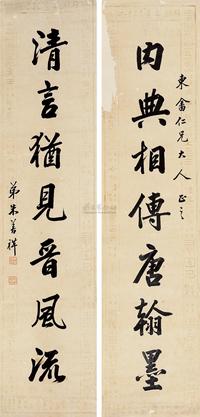 東畬仁兄大人正之
內典相傳唐翰墨
清言猶見晉風流
弟朱善祥